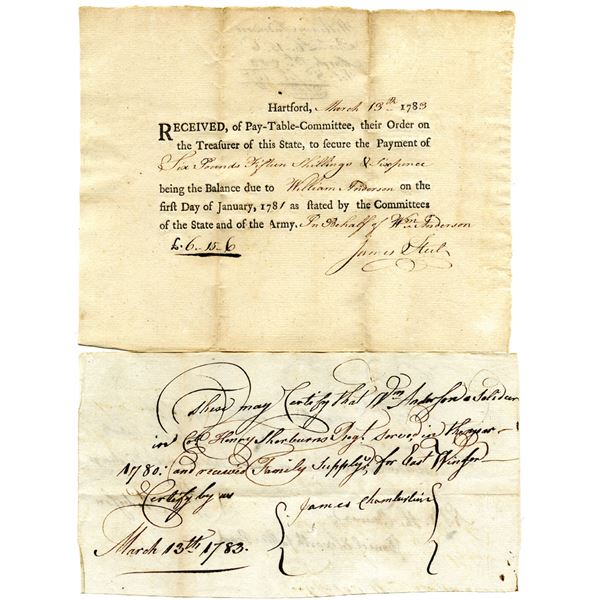 Hartford, March 13th 1783
RECEIVED, of Pay-Table-Committee, their Order on
the Treasurer of this State, to secure the Payment of
Six Pounds Fifteen Shillings & Sixpence
being the Balance due to William Anderson on the
first Day of January, 1781 as stated by the Committees
of the State and of the Army. In Behalf of Wm Anderson
£.6-15-6
James Steel
These may Certify that Wm Anderson a Soldier
in Col Henry Sherburns Regt Served in the year
1780: and received Family Supplys for East Windsor
Certify by us
James Chamberlin
March 13th 1783.